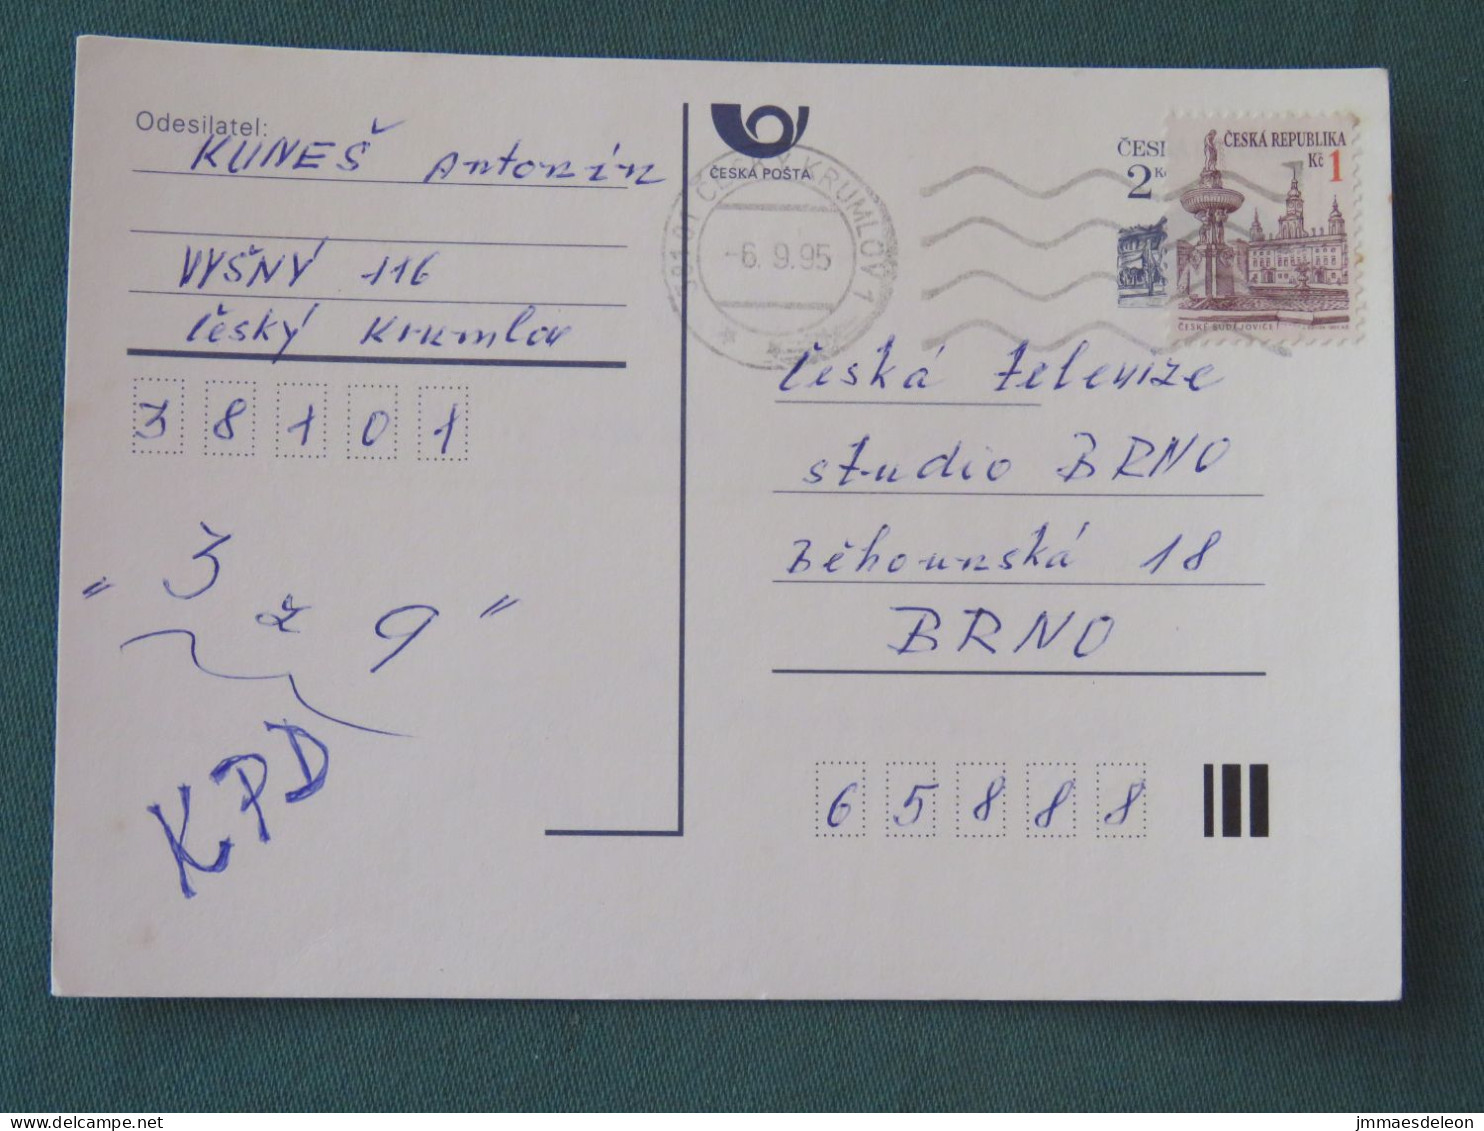 Odesilatel:
KUNEŠ Antonín
VYŠNÝ 116
Český Krumlov
38101
"3 z 9"
KPD
ČESKÁ POŠTA
381 01 ČESKÝ KRUMLOV 1
-6.9.95
ČESK
2 K
ČESKÁ REPUBLIKA
Kč 1
ČESKÉ BUDĚJOVICE
Česká televize
studio BRNO
Běhounská 18
BRNO
65888
www.delcampe.net
jmmaesdeleon